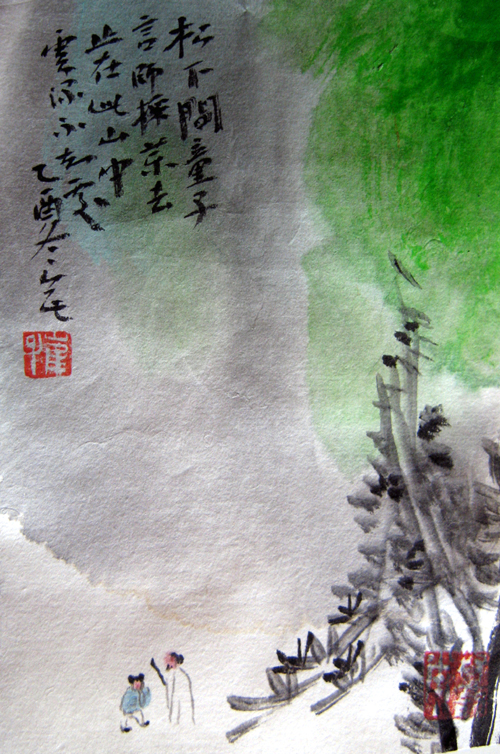 松下問童子
言師採藥去
止在此山中
雲深不知處
乙酉冬